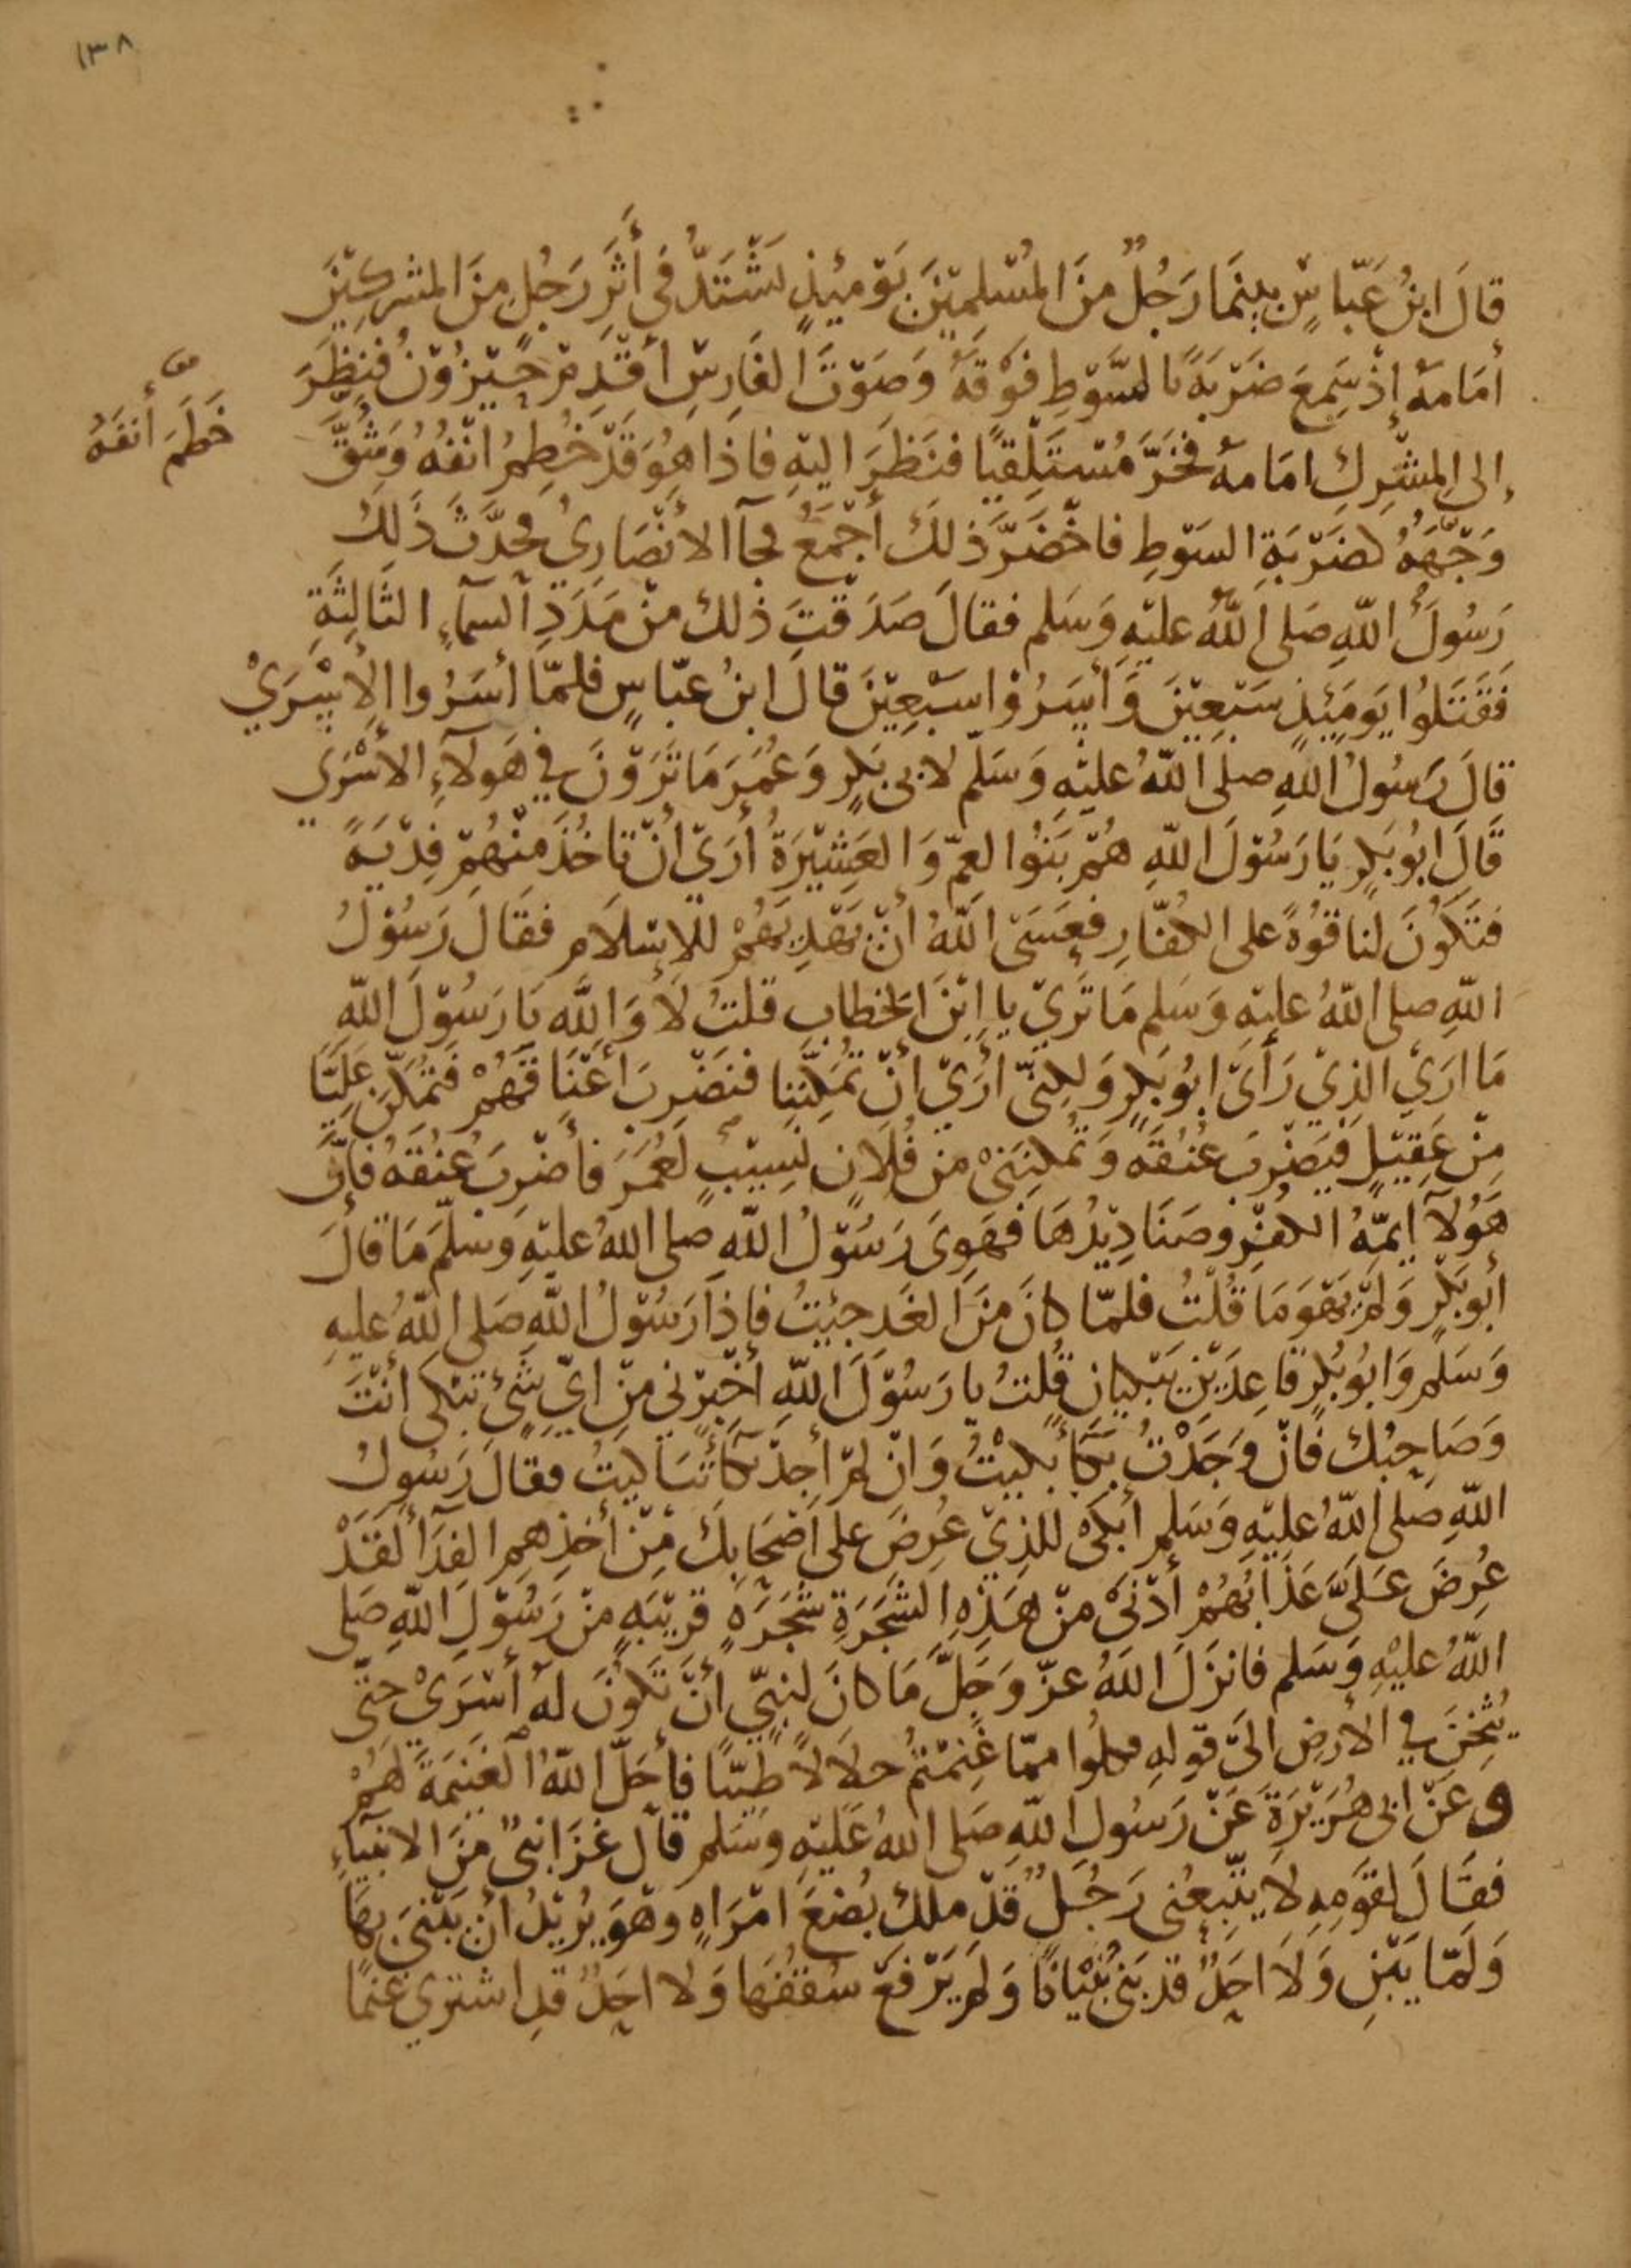 ١٣٨
قَالَ ابنُ عَبّاسٍ بينَمَا رَجُلٌ منَ المُسْلِمِيْنَ يَوْمَئِذٍ يَشْتَدُّ فى أَثَرِ رَجُلٍ منَ المشركيْنَ
أمَامَهُ إذْ سَمِعَ ضَرْبَةً بالسَّوْطِ فَوْقَهُ وَصَوْتَ الفَارِسِ أقْدِمْ حَيْزُوْنُ فنظَرَ
إلى المشْرِكِ امَامهُ فخَرَّ مُسْتَلْقِيًا فنَظَرَ اليهِ فاذا هُوَ قَدْ خُطِمَ انْفُهُ وَشُقَّ
خَطَمَ أنفَهُ
وَجْهُهُ كضَرْبَةِ السَوْطِ فاخْضَرَّ ذلكَ أجْمَعُ فجآ الأنْصَارِىُ فحدَّثَ ذَلِكَ
رَسُولَ اللّهِ صَلى اللّهُ عليْهِ وَسَلم فقالَ صَدَقْتَ ذلك منْ مَدَدِ السمآءِ الثَالِثَةِ
فَقَتَلُوا يَوْمَئِذٍ سَبْعِيْنَ وَأسَرُوْا سَبْعِيْنَ قالَ ابنُ عبّاسٍ فلمّا أسَرُوا الأسْرَىْ
قالَ رَسُولُ اللهِ صلى اللّهُ عليْهِ وَسَلّم لابى بَكرٍ وَعُمَرَ مَا تَرَوْنَ في هَولآءِ الأسْرَي
قَالَ ابُو بَكرٍ يَا رَسُوْلَ اللّهِ هُمْ بَنُوا العمّ وَالعَشِيْرَةُ أرَيْ أنْ تاخُذَ منْهُمْ فِدْيَةً
فتَكُونَ لنا قوُةً على الكفّارِ فعَسَى اللّهُ أنْ يَهْدِيَهُمْ للإسْلاَمِ فقَالَ رَسُوْلُ
اللّهِ صلى اللّهُ عليْهِ وَسَلم مَا تَريْ يا ابْنَ الخطابِ قلتُ لاَ وَاللّهِ يَا رَسُوْلَ اللّهِ
مَا ارَيْ الذِيْ رَأىَ ابُو بَكرٍ وَلكنّىْ أرَيْ أنْ تُمَكِنّنا فنَضْرِبَ أعْنَاقَهُمْ فتُمَكِنَ عَلِيًّا
مِنْ عَقِيْلٍ فيَضْرِبَ عُنُقَهُ وَتُمكنِنَىْ منْ فُلاَنٍ نَسِيْبٍ لعُمَرَ فأضْرِبَ عُنُقَهُ فإنَّ
هَؤُلآ ايمّةُ الكفْرِ وصَنَادِيْدُهَا فهَوِىَ رَسُوْلُ اللّهِ صلى اللهُ عليْهِ وَسَلّمَ مَا قالَ
أبُو بَكْرٍ وَلمْ يَهْوَ مَا قُلْتُ فلمّا كانَ منَ الغَدِ جئتُ فإذا رَسُوْلُ اللّهِ صَلى اللّهُ عليهِ
وَسَلم وَابُو بُكرٍ قاعِدَيْنِ يَبْكيانِ قُلتُ يا رَسُوْلَ اللّهِ أخْبِرْنى منْ ايِّ شَىْءٍ تبْكى أنْتَ
وَصَاحِبُك فانْ وَجَدْتُ بكآ بَكيْتُ وَانْ لمْ أجِدْ بُكآ تَباكيتُ فقالَ رَسُولُ
اللّهِ صَلى اللّهُ عليْهِ وَسَلم أبْكى للذِيْ عُرِضَ على أصْحَابِكَ منْ أخذِهمِ الفِدَآ لَقَدْ
عُرِضَ عَلَىَّ عَذَابُهُمْ أدْنىَ منْ هَذِهِ الشَجَرَةِ شَجَرَةٍ قَرِيْبَةٍ منْ رَسُوْلِ اللّهِ صَلى
اللّهُ عليْهِ وَسَلم فانزَلَ اللهُ عزّ وَجَلَّ مَا كانَ لنبِيّ أنْ تَكُونَ لهُ أسْرَىْ حتّى
يُثْخِنَ في الأرْضِ الىَ قوْلهِ فكلُوا ممّا غنِمْتمُ حلاَلاً طيّبًا فأحَلَّ اللّهُ الغَنيْمَةَ لهُمْ
وعَنْ ابى هُرَيْرَةَ عَنْ رَسُولِ اللّهِ صَلى اللهُ عَليْهِ وسَلم قالَ غزَا نبىٌ منَ الانبيآءِ
فقَالَ لقوْمِهِ لاَ يتّبِعْنى رَجُلٌ قدْ ملكَ بُضعَ امْرَاةٍ وَهْوَ يُرِيْدُ أنْ يَبْنىَ بهَا
وَلَمّا يَبْنِ وَلاَ احَدٌ قدْ بَنى بُنْيَانًا وَلمْ يَرْفعْ سُقفَهَا وَلا احَدٌ قدِ اشترى غنمًا